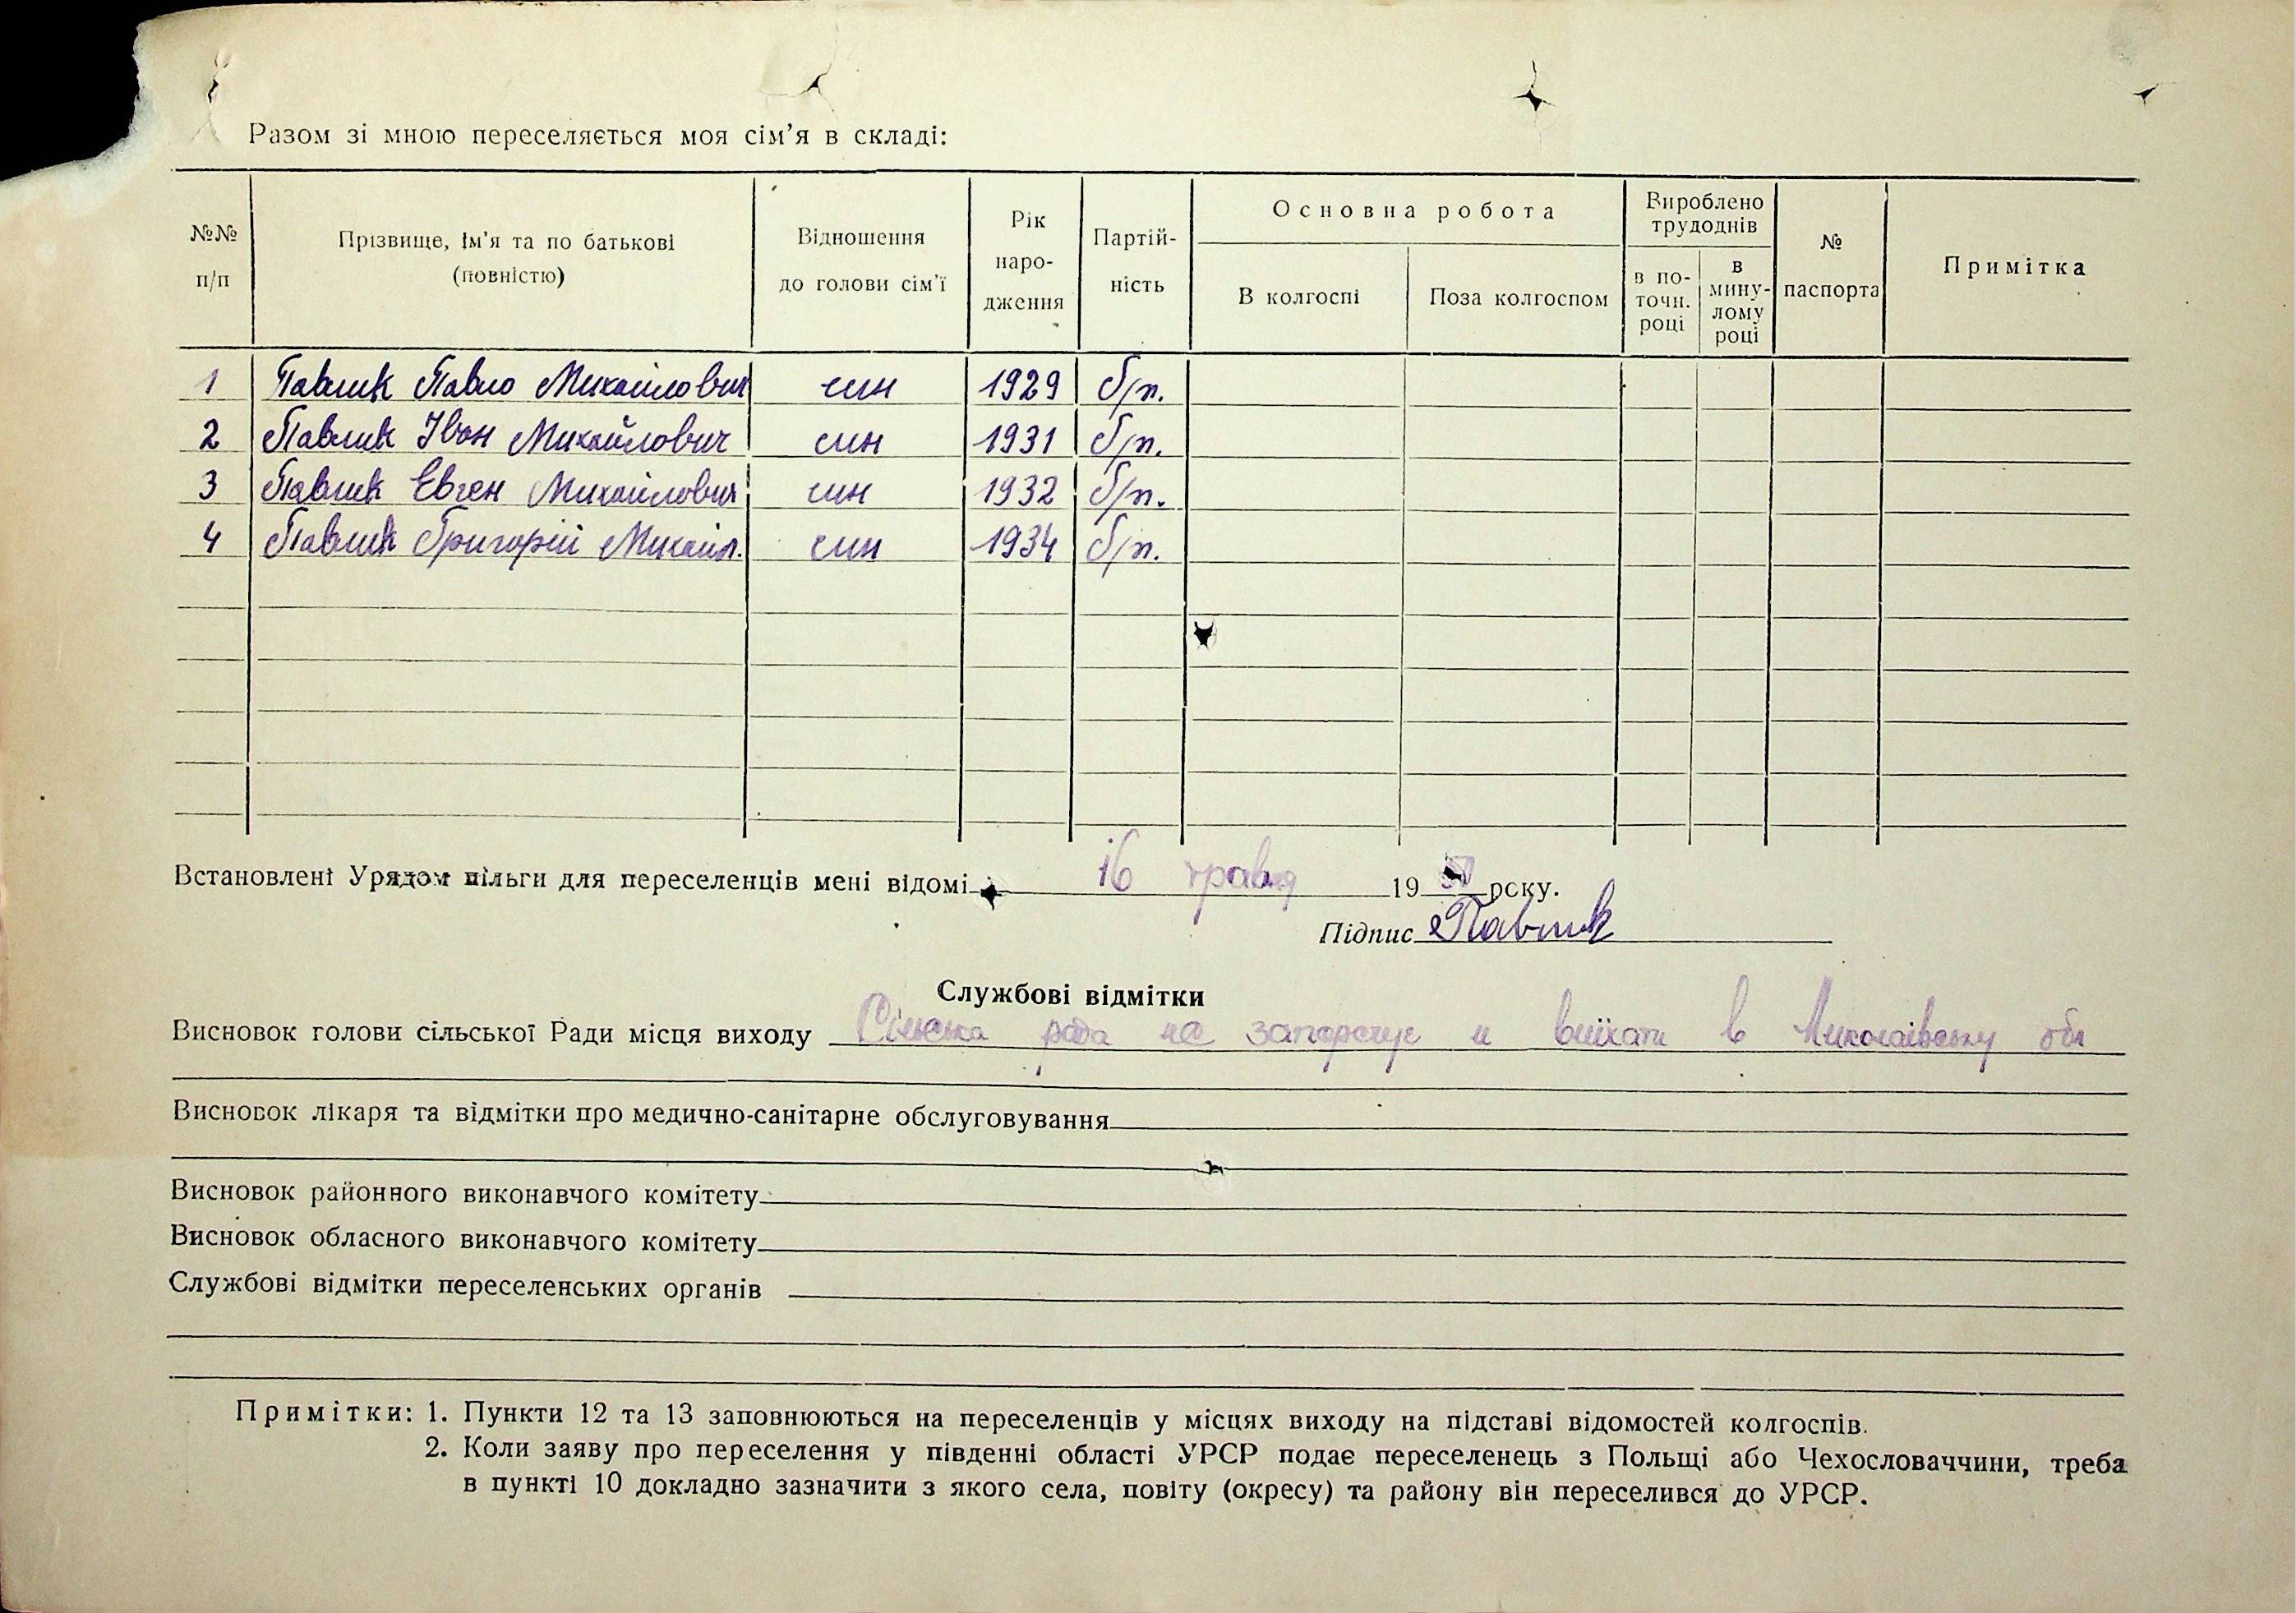 Разом зі мною переселяється моя сім'я в складі:
№№ п/п
Прізвище, ім'я та по батькові (повністю)
Відношення до голови сім'ї
Рік народження
Партійність
Основна робота
В колгоспі
Поза колгоспом
Вироблено трудоднів
в поточн. році
в минулому році
№ паспорта
Примітка
1 Павлик Павло Михайлович син 1929 б/п.
2 Павлик Іван Михайлович син 1931 б/п.
3 Павлик Евген Михайлович син 1932 б/п.
4 Павлик Григорій Михайл. син 1934 б/п.
Встановлені Урядом пільги для переселенців мені відомі 16 травня 1950 року.
Підпис Павлик
Службові відмітки
Висновок голови сільської Ради місця виходу Сільська рада не заперечує и виїхати в Миколаївську обл
Висновок лікаря та відмітки про медично-санітарне обслуговування
Висновок районного виконавчого комітету
Висновок обласного виконавчого комітету
Службові відмітки переселенських органів
Примітки: 1. Пункти 12 та 13 заповнюються на переселенців у місцях виходу на підставі відомостей колгоспів.
2. Коли заяву про переселення у південні області УРСР подає переселенець з Польщі або Чехословаччини, треба
в пункті 10 докладно зазначити з якого села, повіту (окресу) та району він переселився до УРСР.